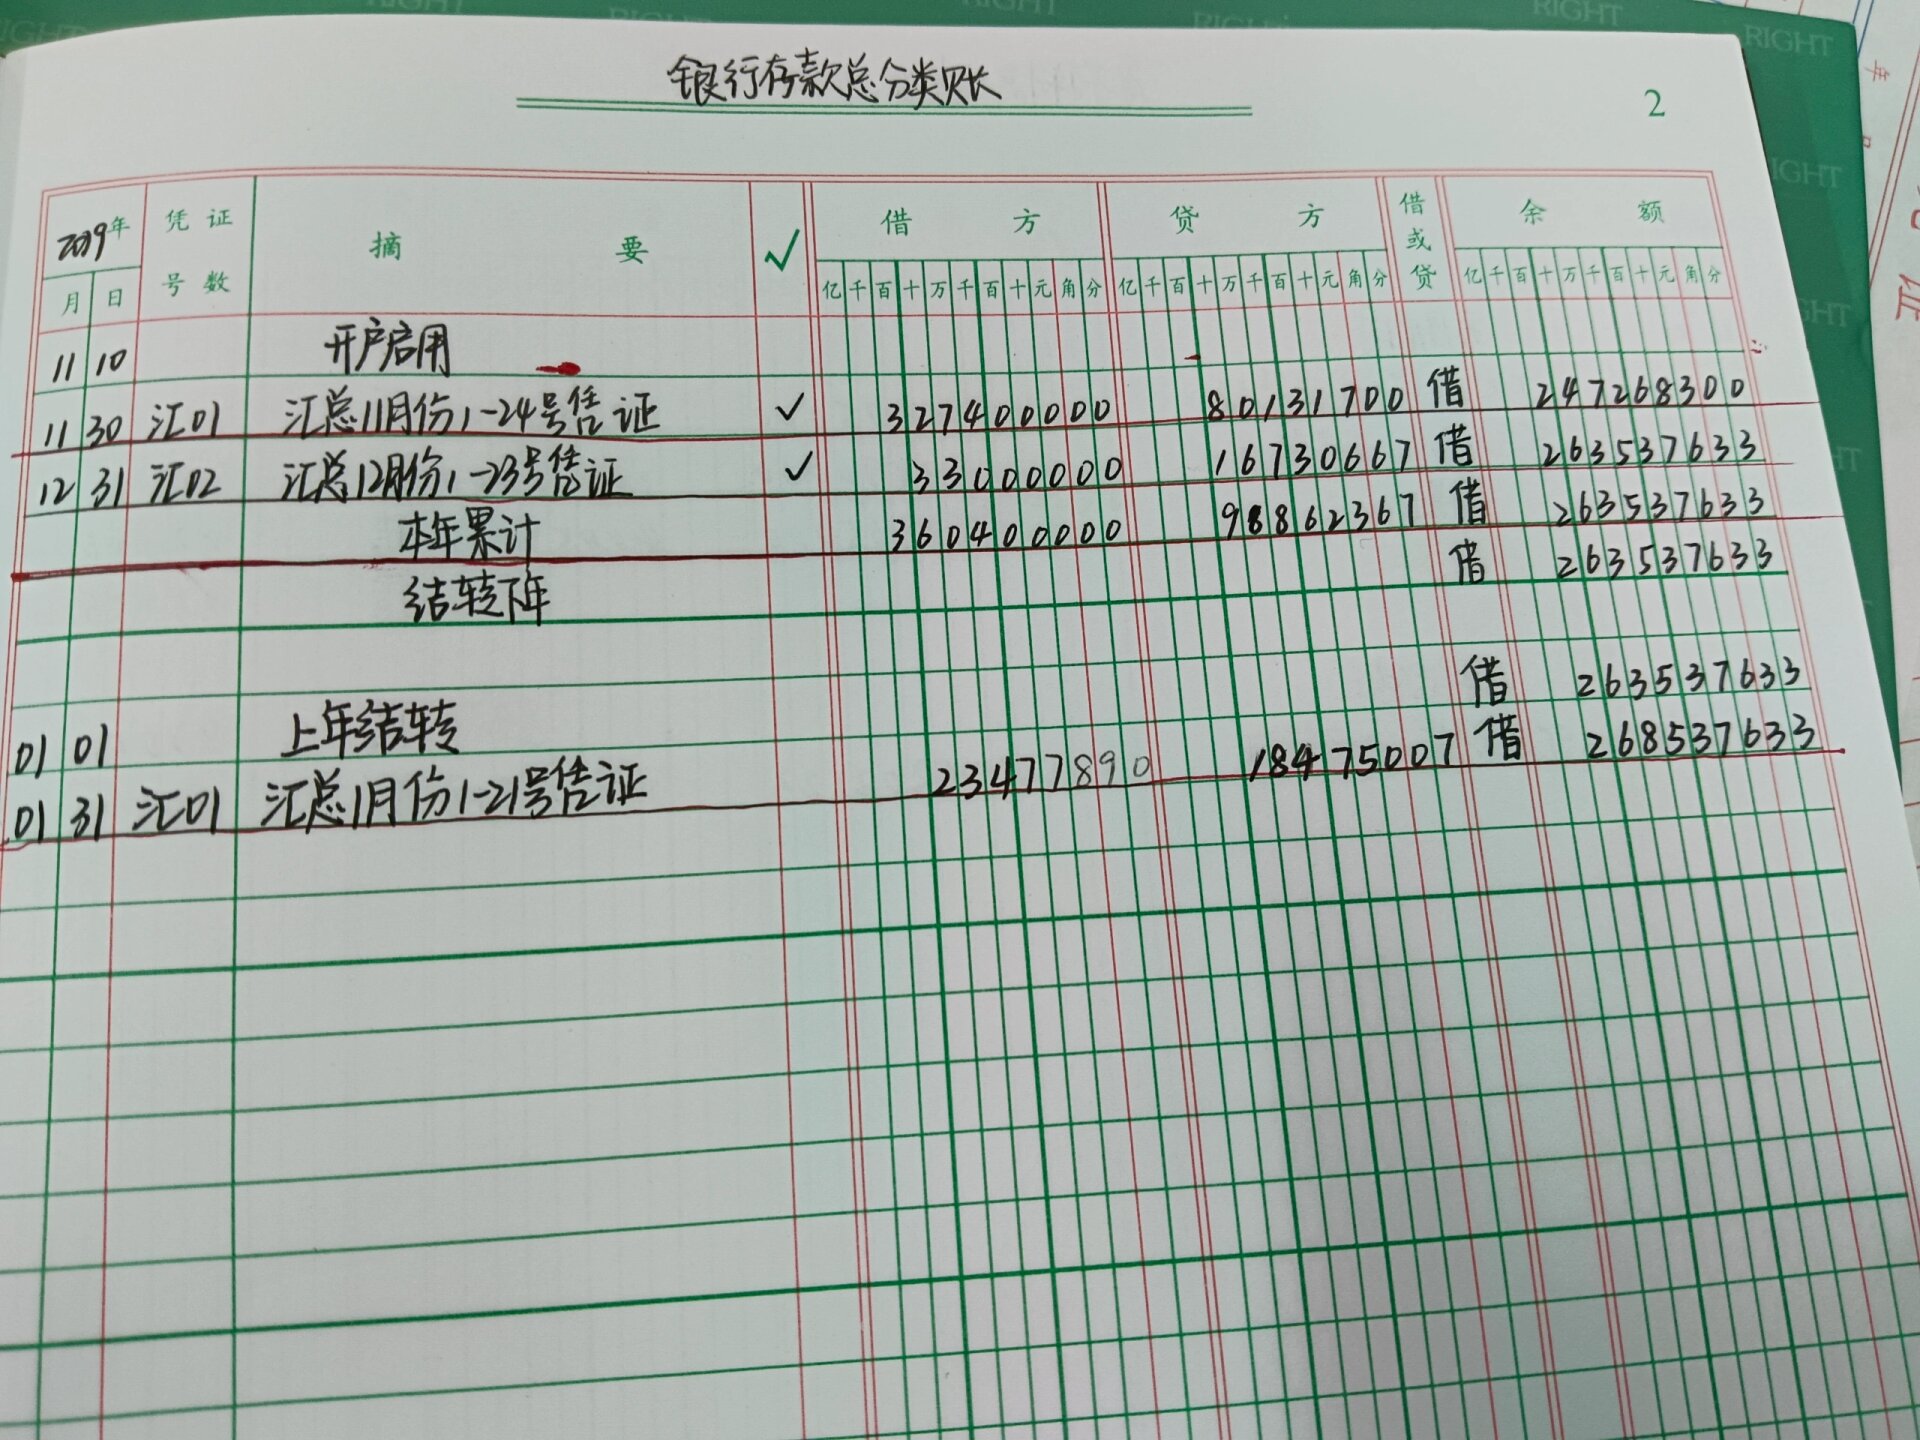 RIGHT RIGHT RIGHT RIGHT RIGHT
银行存款总分类账
2
2019年 凭证号数 摘要 ✓ 借方 贷方 借或贷 余额
月 日 亿千百十万千百十元角分 亿千百十万千百十元角分 亿千百十万千百十元角分
11 10 开户启用
11 30 汇01 汇总11月份1-24号凭证 ✓ 327400000 80131700 借 247268300
12 31 汇02 汇总12月份1-23号凭证 ✓ 33000000 16730667 借 263537633
本年累计 360400000 98862367 借 263537633
结转下年 借 263537633
01 01 上年结转 借 263537633
01 31 汇01 汇总1月份1-21号凭证 23477890 18475007 借 268537633